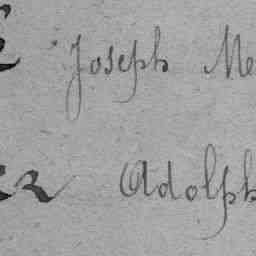 Joseph Me
er Adolph